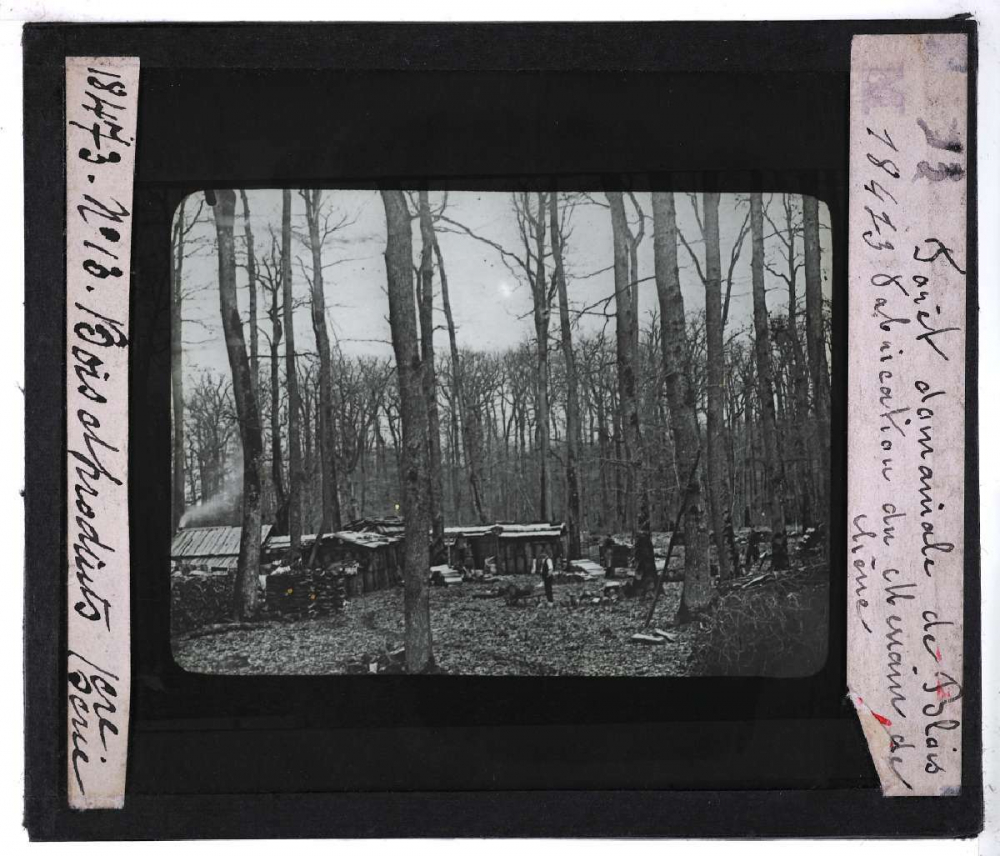 18473. N° 13. Bois et produits 1ere
Serie
13 Forêt domaniale de Blois
18473 Fabrication du Merrain de
chêne